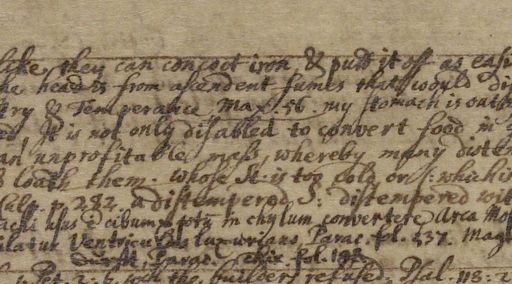 like, they can concoct iron & put it off as easi
he head is from ascendent fumes that would di
try & Temperance Max. 56. my stomach is
It is not only disabled to convert food in
an unprofitable mass, whereby many diste
loath them. whose St: is too cold or: which
p. 282. a distempered S: distempered wit
usus è cibum & potū in chylum convertere Arca Mo
latur Ventriculus luxurians, Parac. fol. 537. Mag
Parac. fol.
1. Pet. 2. the builders refused, Psal. 118: 2